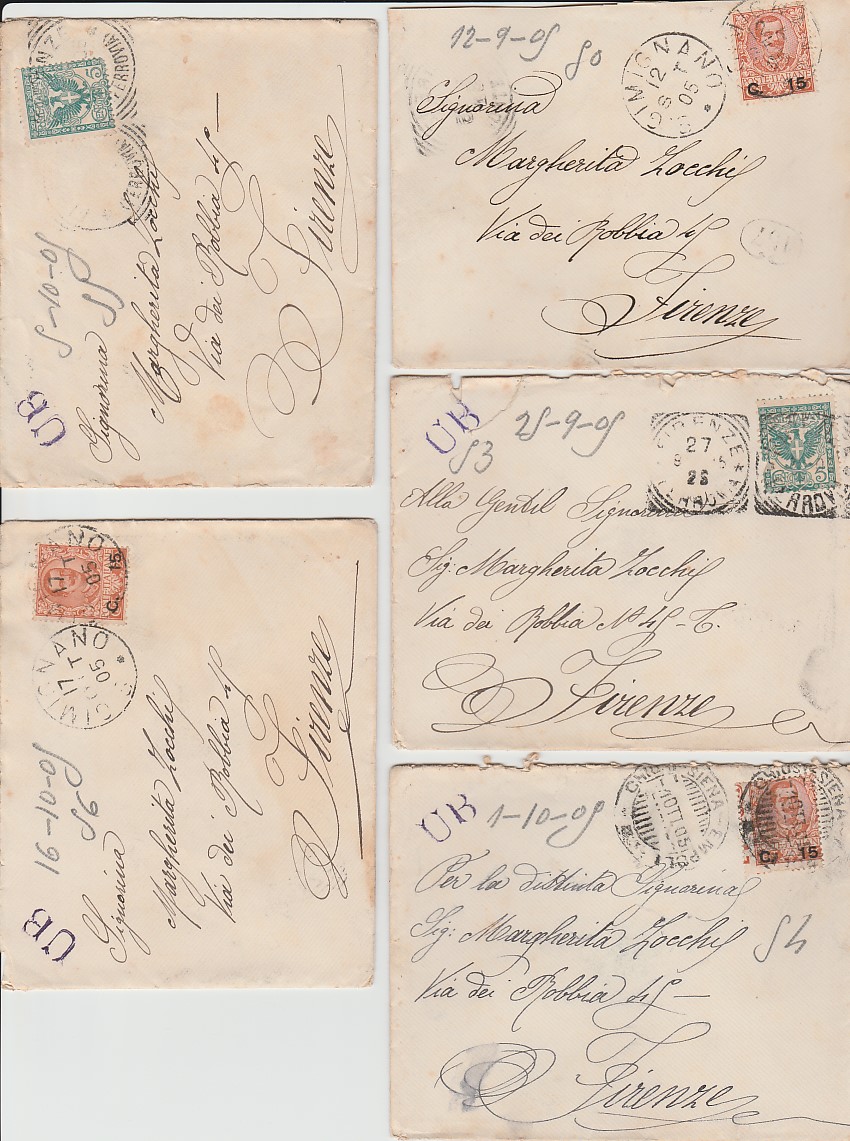 FIRENZE
FERROVIA
5
FERROVIA
5-10-05
55
UB
Signorina
Margherita Zocchi
Via dei Robbia 45 —
Firenze
12-9-05
50
S. GIMIGNANO
12
S T
05
C. 15
Signorina
Margherita Zocchi
Via dei Robbia 45
Firenze
UB
53
25-9-05
FIRENZE
27
9 5
2S
FERROVIA
5
Alla Gentil Signorina
Sig: Margherita Zocchi
Via dei Robbia N° 45 - T.
Firenze
C. 15
S. GIMIGNANO
17
O T
05
16-10-05
56
UB
Signorina
Margherita Zocchi
Via dei Robbia 45
Firenze
UB
1-10-05
CHIUSI-SIENA-EMPOLI
C. 15
Per la distinta Signorina
Sig: Margherita Zocchi
54
Via dei Robbia 45 —
Firenze